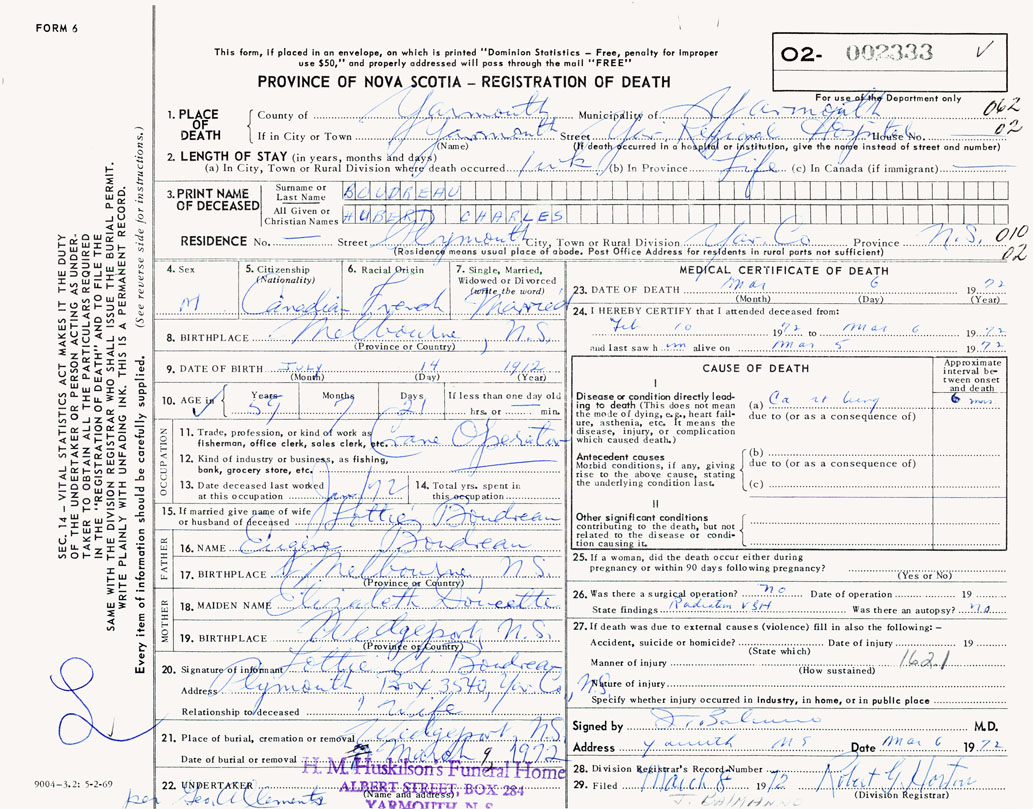 FORM 6
This form, if placed in an envelope, on which is printed "Dominion Statistics – Free, penalty for improper
use $50," and properly addressed will pass through the mail "FREE"
PROVINCE OF NOVA SCOTIA – REGISTRATION OF DEATH
O2- 002333 ✓
For use of the Department only
1. PLACE OF DEATH
County of Yarmouth Municipality of Yarmouth 062
If in City or Town Yarmouth Street Yar. Regional Hospital House No. 02
(Name) (If death occurred in a hospital or institution, give the name instead of street and number)
2. LENGTH OF STAY (in years, months and days)
(a) In City, Town or Rural Division where death occurred 1 wk (b) In Province Life (c) In Canada (if immigrant)
3. PRINT NAME OF DECEASED
Surname or Last Name BOUDREAU
All Given or Christian Names HUBERT CHARLES
RESIDENCE No. — Street Plymouth City, Town or Rural Division Yar. Co. Province N.S. 010
(Residence means usual place of abode. Post Office Address for residents in rural parts not sufficient) 02
4. Sex M
5. Citizenship (Nationality) Canadian
6. Racial Origin French
7. Single, Married, Widowed or Divorced (write the word) Married
8. BIRTHPLACE Melbourne, N.S.
(Province or Country)
9. DATE OF BIRTH JULY 14 1912
(Month) (Day) (Year)
10. AGE in Years 59 Months 7 Days 21 If less than one day old
hrs. or min.
OCCUPATION
11. Trade, profession, or kind of work as
fisherman, office clerk, sales clerk, etc. Crane Operator
12. Kind of industry or business, as fishing,
bank, grocery store, etc.
13. Date deceased last worked
at this occupation Jan/72
14. Total yrs. spent in
this occupation
15. If married give name of wife
or husband of deceased Lottie Boudreau
FATHER
16. NAME Eugene Boudreau
17. BIRTHPLACE Melbourne, N.S.
(Province or Country)
MOTHER
18. MAIDEN NAME Elizabeth Doucette
19. BIRTHPLACE Wedgeport, N.S.
(Province or Country)
20. Signature of informant Lottie A. Boudreau
Address Plymouth Box 3540, Yar. Co., N.S.
Relationship to deceased Wife
21. Place of burial, cremation or removal Wedgeport, N.S.
Date of burial or removal March 9, 1972
22. UNDERTAKER
(Name and address)
H. M. Huskilson's Funeral Home
ALBERT STREET, BOX 284
YARMOUTH, N. S.
per Geo. A. Clements
MEDICAL CERTIFICATE OF DEATH
23. DATE OF DEATH Mar 6 1972
(Month) (Day) (Year)
24. I HEREBY CERTIFY that I attended deceased from:
Feb 10 1972 to Mar 6 1972
and last saw h im alive on Mar 5 1972
CAUSE OF DEATH
Approximate interval between onset and death
I
Disease or condition directly leading to death (This does not mean the mode of dying, e.g., heart failure, asthenia, etc. It means the disease, injury, or complication which caused death.)
(a) Ca rt lung 6 mos.
due to (or as a consequence of)
Antecedent causes
Morbid conditions, if any, giving rise to the above cause, stating the underlying condition last.
(b)
due to (or as a consequence of)
(c)
II
Other significant conditions
contributing to the death, but not related to the disease or condition causing it.
25. If a woman, did the death occur either during
pregnancy or within 90 days following pregnancy?
(Yes or No)
26. Was there a surgical operation? No Date of operation 19
State findings Radiation VGH Was there an autopsy? no
27. If death was due to external causes (violence) fill in also the following: –
Accident, suicide or homicide? Date of injury 19
(State which)
Manner of injury 162.1
(How sustained)
Nature of injury
Specify whether injury occurred in industry, in home, or in public place
Signed by M.D.
Address Yarmouth NS Date Mar 6 1972
28. Division Registrar's Record Number
29. Filed March 8 1972 Robert G. Horton
(Division Registrar)
SEC. 14 – VITAL STATISTICS ACT MAKES IT THE DUTY
OF THE UNDERTAKER OR PERSON ACTING AS UNDER-
TAKER TO OBTAIN ALL THE PARTICULARS REQUIRED
IN THE "REGISTRATION OF DEATH" AND TO FILE THE
SAME WITH THE DIVISION REGISTRAR WHO SHALL ISSUE THE BURIAL PERMIT.
WRITE PLAINLY WITH UNFADING INK. THIS IS A PERMANENT RECORD.
Every item of information should be carefully supplied. (See reverse side for instructions.)
9004-3.2: 5-2-69